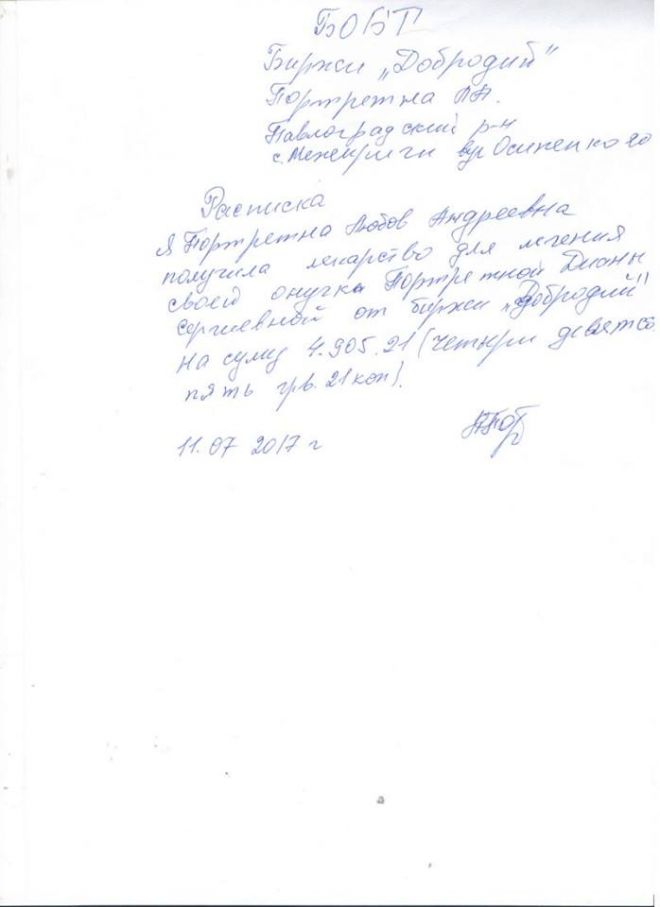 БОБТ
Биржи „Добродий"
Портретна ЛА.
Павлоградский р-н
с. Межеричи вул Осипенко 20
Расписка
Я Портретна Любов Андреевна
получила лекарство для лечения
своей онучки Портретной Дианы
Сергиевной от биржи „Добродий"
на суму 4.905.21 (четыри девятсо
пять грв. 21 коп).
11.07 2017 г